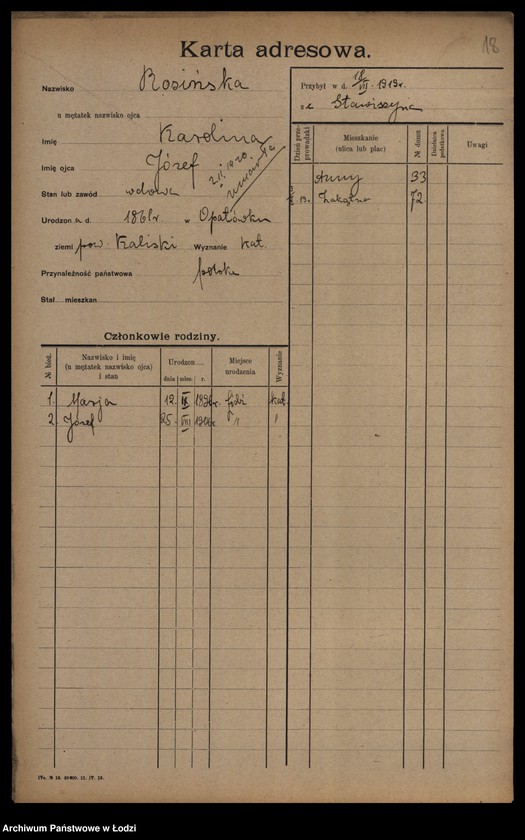 18
Karta adresowa.
Nazwisko Rosińska
u mężatek nazwisko ojca
Imię Karolina
Imię ojca Józef
2.II.1920 umarła
Stan lub zawód wdowa
Urodzon w d. 1861r w Opatówku
ziemi pow. Kaliski Wyznanie kat.
Przynależność państwowa polska
Stał mieszkan
Przybył w d. 18/VII 1919r.
z Stawiszyna
Dzień przeprowadzki
Mieszkanie (ulica lub plac)
№ domu
Dzielnica podatkowa
Uwagi
Anny 33
Zakątna 72
Członkowie rodziny.
№ bież.
Nazwisko i imię
(u mężatek nazwisko ojca)
i stan
Urodzon....
dnia mies. r.
Miejsce urodzenia
Wyznanie
1. Marja 12. IX Łódź kat.
2. Józef 25. VIII " "
17c. № 18. 20000. 11. 17. 18.
Archiwum Państwowe w Łodzi